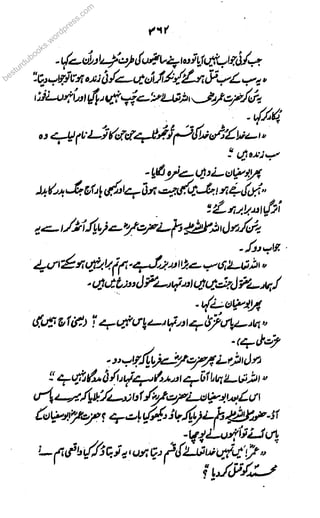 ۳۶۲
جب کوئی جواب نہیں آیا تو وہ اپنے ساتھیوں کی طرف مڑے اور ان سے کہا۔
" یہ سب کے سب قتل ہو گئے کیونکہ اگر ان میں سے کوئی زندہ ہوتا تو جواب دیتا"
یہ سن کر حضرت عمر رضی اللہ تعالیٰ عنہ سے چپ نہیں رہا گیا اور انہوں نے فوراً
پکار کر کہا۔
" اے خدا کے دشمن خدا کی قسم تو جھوٹا ہے جن جن کا تو نے نام لیا ہے وہ
سب زندہ ہیں "
پھر ابوسفیان نے وہیں سے نعرہ لگایا۔
" ہبل کی جے ہو! جنگ میں کبھی جیت ہوتی ہے اور کبھی ہار آج جنگ بدر کا بدلہ
اتر گیا اور برابر ہو گئے "
یہ سن کر رسول اللہ صلی اللہ علیہ وسلم نے حضرت عمرؓ سے فرمایا کہ اٹھ کر اسے یہ
جواب دو کہ۔
" اللہ تعالےٰ ہی سب سے بڑا اور بزرگ ہے۔ ہم تم برابر نہیں ہو سکتے اس لیے
کہ ہمارے مقتول جنت میں ہیں اور تمہارے مقتول دوزخ میں ہیں۔
پھر ابوسفیان نے کہا۔
" ہمارے پاس عزیٰ ہے اور تمہارے پاس نہیں ہے " ( یعنی آج ہمیں بھی
عزت ملی ہے )۔
رسول اللہ نے پھر حضرت عمرؓ سے فرمایا کہ جواب دو۔
" اللہ تعالےٰ ہمارا آقا ہے اور مددگار ہے تمہارا کوئی مددگار نہیں ہے "
اس کے بعد ابوسفیان نے حضرت عمرؓ کو آواز دے کر بلایا کہ میرے پاس
آؤ۔ حضور صلی اللہ علیہ وسلم نے فرمایا کہ جاؤ دیکھو کیا بات ہے ؟ حضرت عمرؓ ابوسفیان کے
پاس آئے تو انہوں نے پوچھا۔
" عمر! میں تمہیں خدا تعالےٰ کی قسم دیتا ہوں، یہ تو بتاؤ کہ کیا واقعی ہم نے
محمد کو قتل کر دیا ؟
besturdubooks.wordpress.com